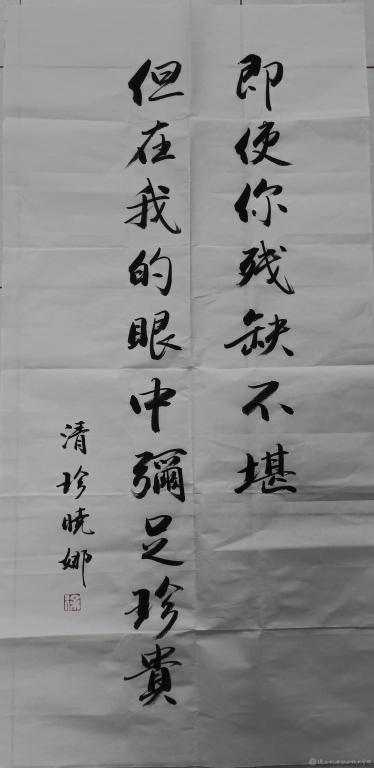 即使你残缺不堪
但在我的眼中彌足珍貴
清珍曉娜